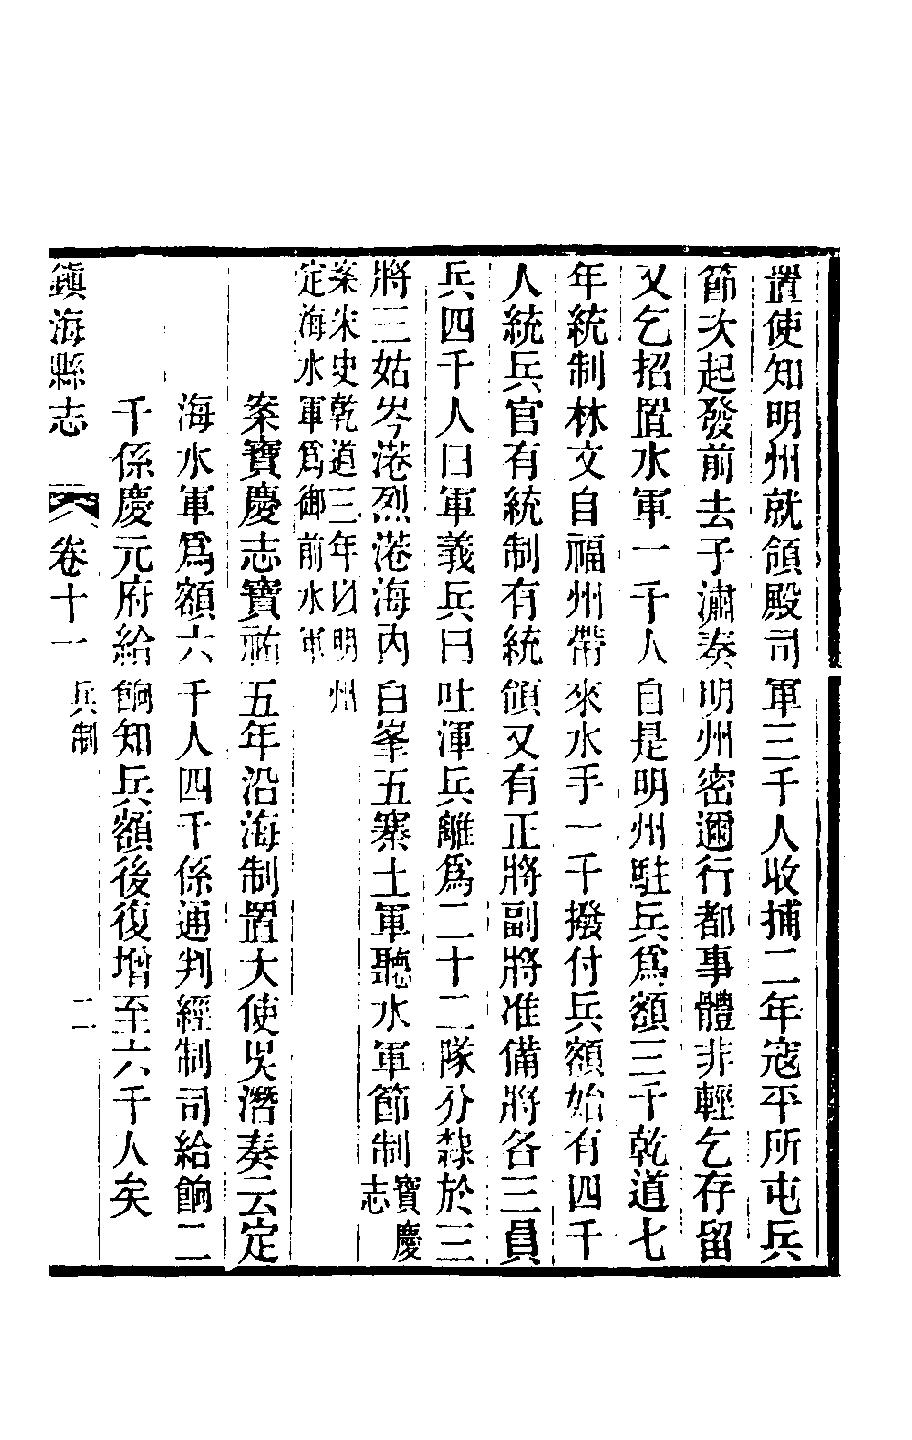 置使知明州就領殿司軍三千人收捕二年寇平所屯兵
節次起發前去子潚奏明州密邇行都事體非輕乞存留
又乞招置水軍一千人自是明州駐兵爲額三千乾道七
年統制林文自福州帶來水手一千撥付兵額始有四千
人統兵官有統制有統領又有正將副將准備將各三員
兵四千人曰軍義兵曰吐渾兵離爲二十二隊分隸於三
將三姑岑港烈港海內白峯五寨土軍聽水軍節制寶慶志
案宋史乾道三年以明州
定海水軍爲御前水軍
案寶慶志寶祐五年沿海制置大使吳潛奏云定
海水軍爲額六千人四千係通判經制司給餉二
千係慶元府給餉知兵額後復增至六千人矣
鎮海縣志 卷十一 兵制 二